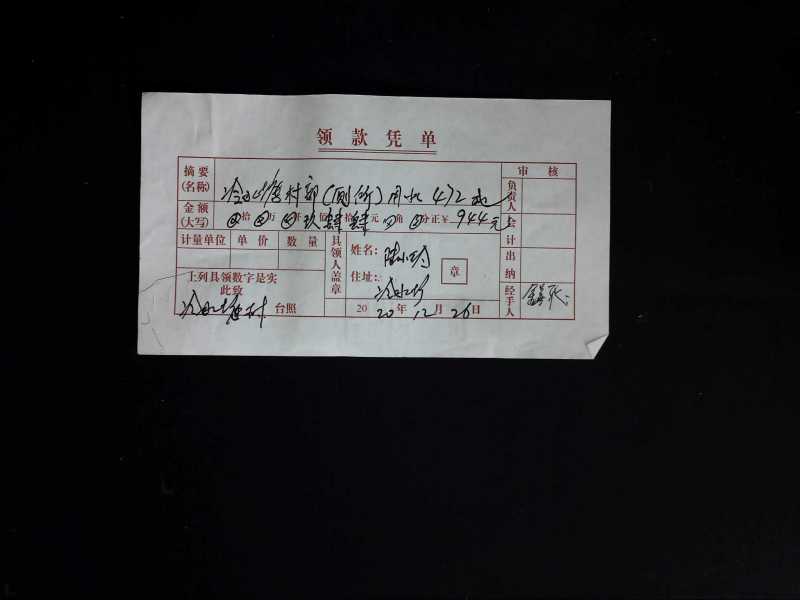 领款凭单
摘要(名称) 冷水塘村部(厕所)用水472吨
金额(大写) ⊗拾⊗万⊗仟玖佰肆拾肆元〇角〇分正￥944元
审核
负责人
会计
出纳
经手人
计量单位 单价 数量
具领人盖章
姓名:
住址:
章
上列具领数字是实
此致
冷水塘村 台照
2020年12月26日